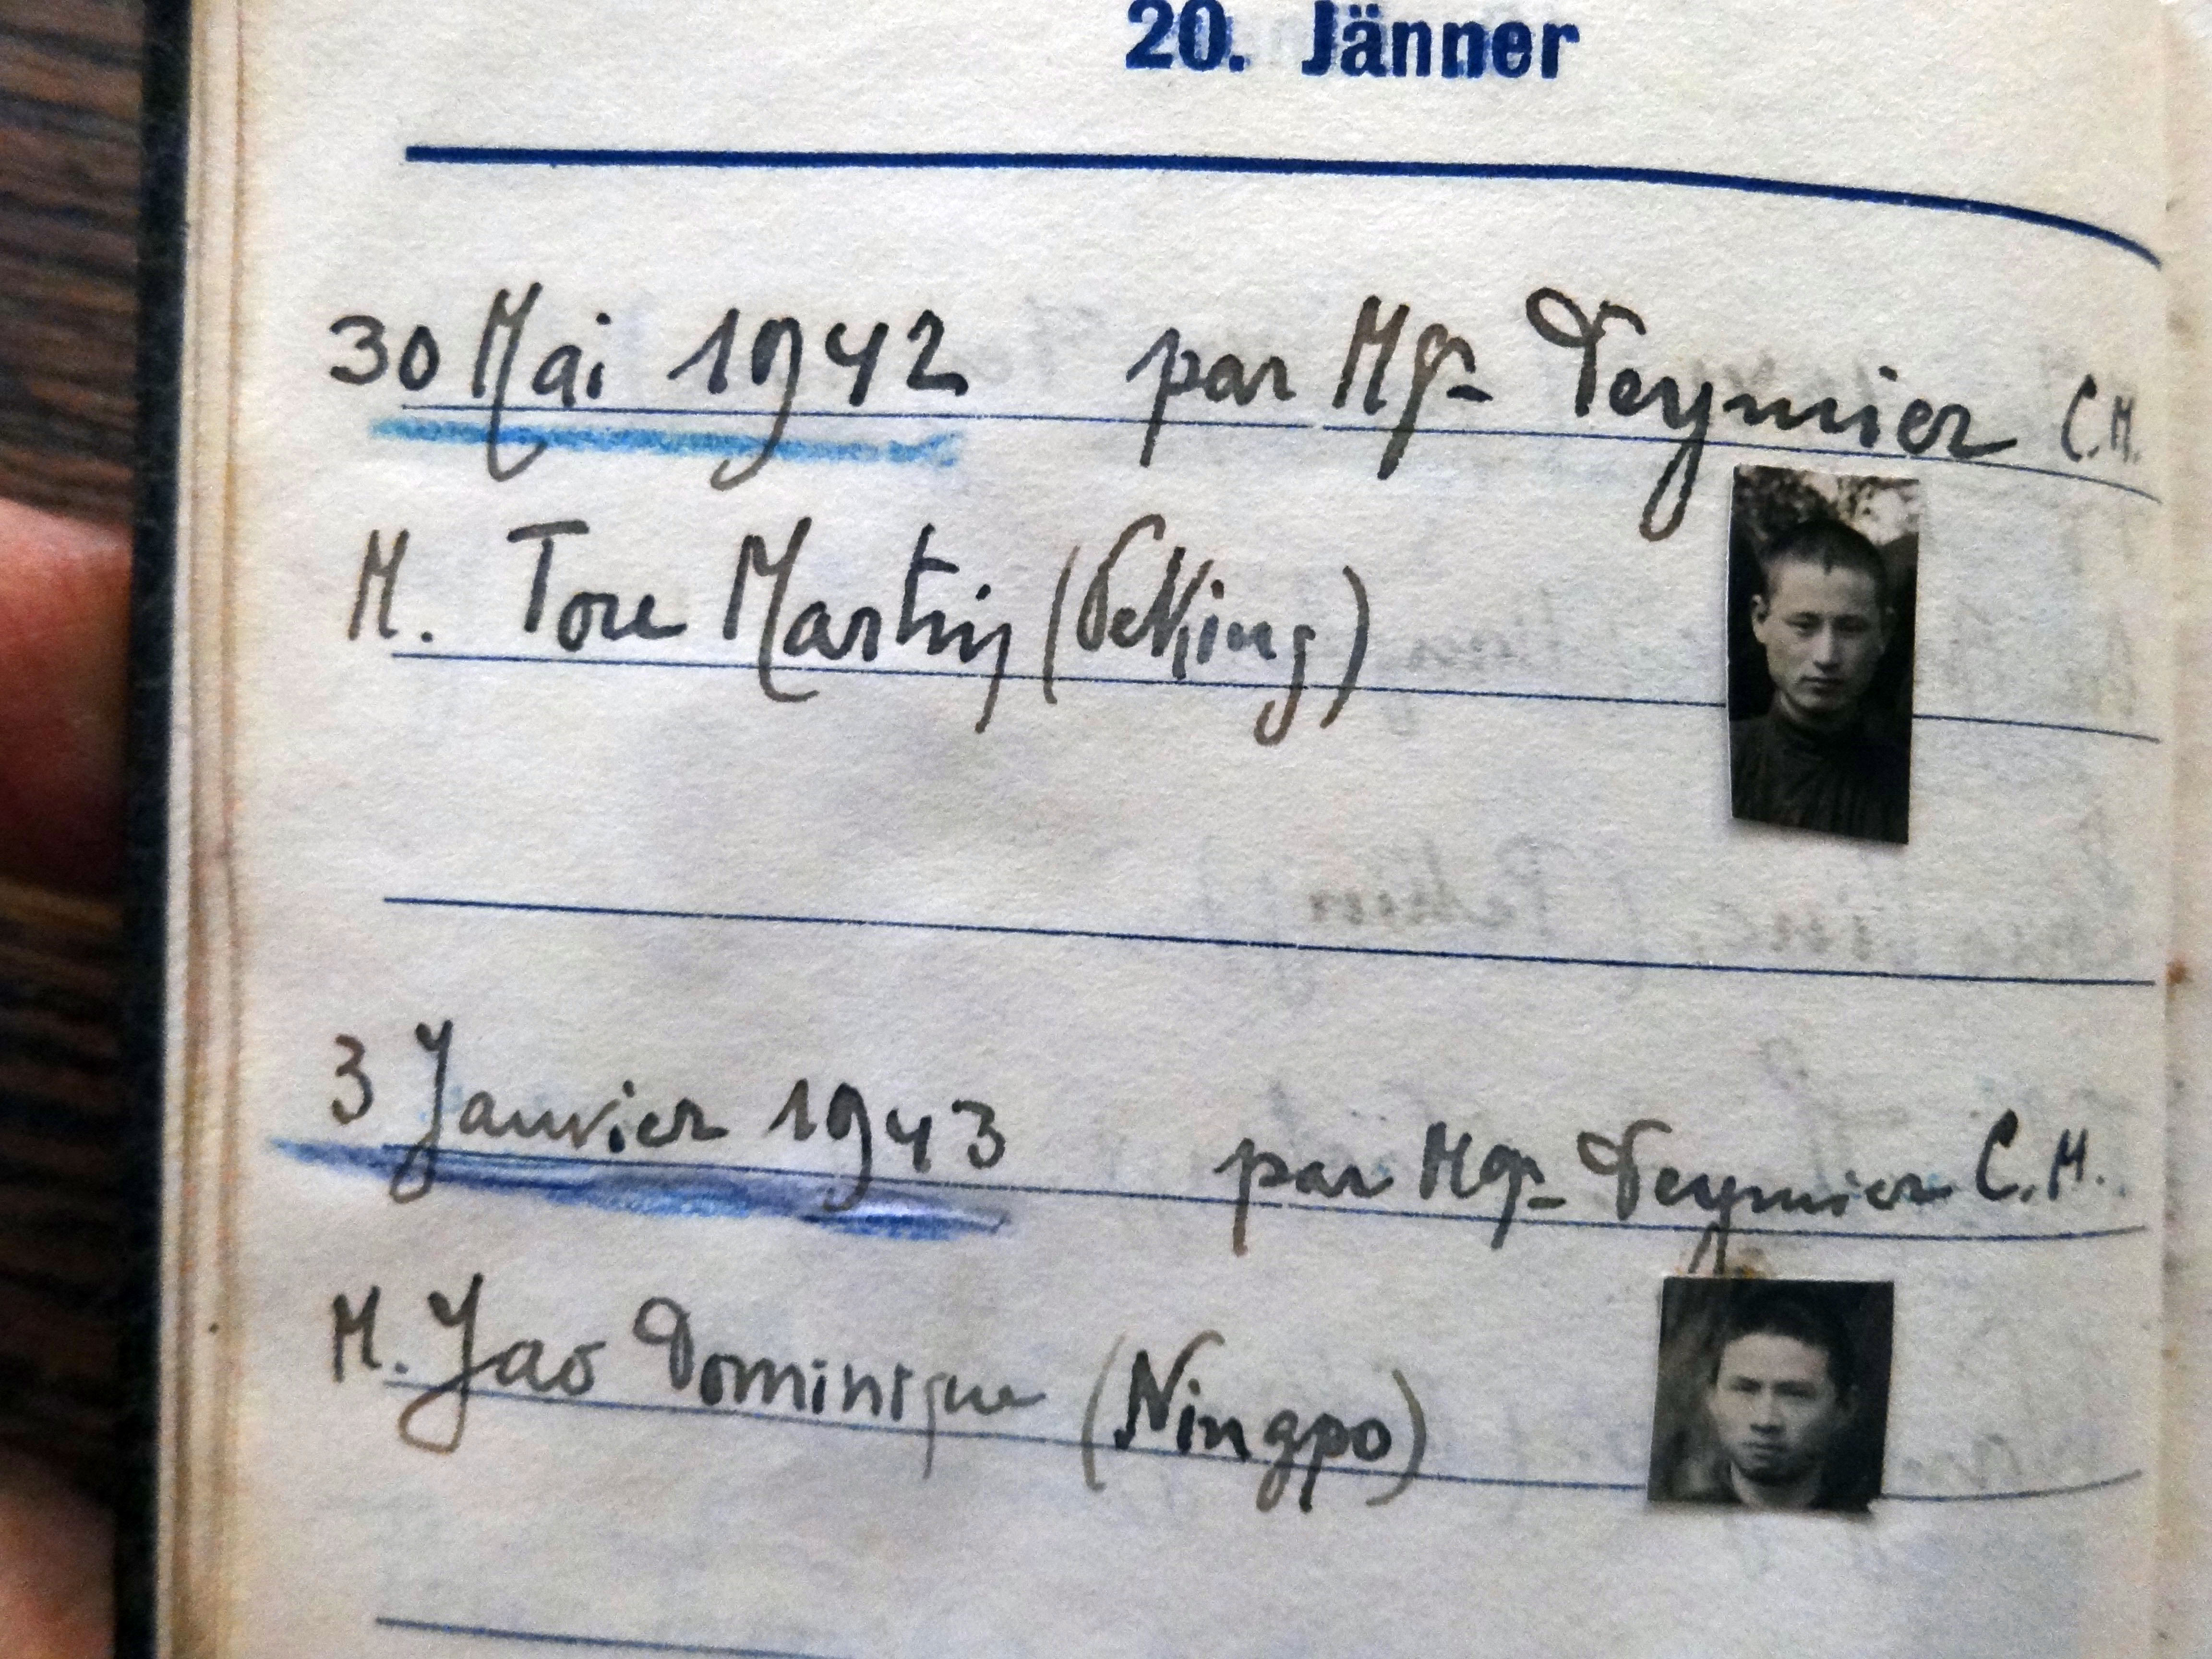 20. Jänner
30 Mai 1942 par Mgr Deymier C.M.
M. Tou Martin (Peking)
3 Janvier 1943 par Mgr Deymier C.M.
M. Yao Dominique (Ningpo)